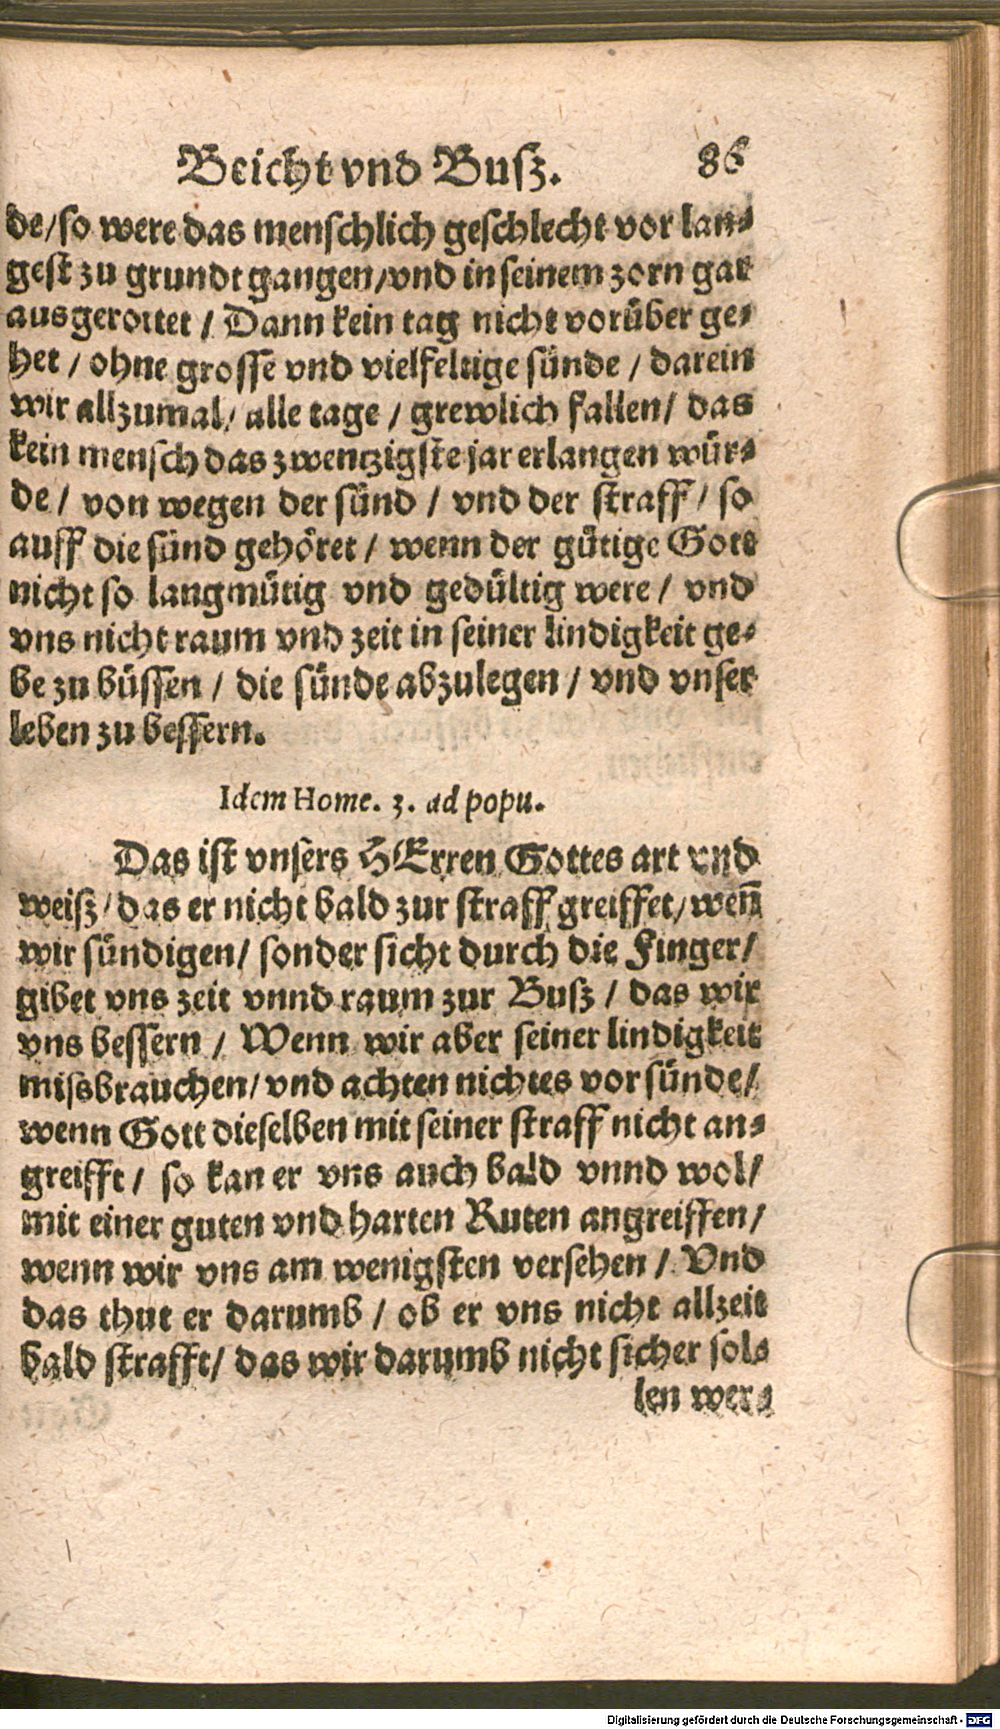 Beicht vnd Busz. 86
de/so were das menschlich geschlecht vor lan⸗
gest zu grundt gangen/vnd in seinem zorn gar
ausgerottet / Dann kein tag nicht vorüber ge⸗
het / ohne grosse vnd vielfeltige sünde / darein
wir allzumal/ alle tage / grewlich fallen/ das
kein mensch das zwentzigste jar erlangen wür⸗
de / von wegen der sünd / vnd der straff / so
auff die sünd gehöret / wenn der gütige Gott
nicht so langmütig vnd gedültig were / vnd
vns nicht raum vnd zeit in seiner lindigkeit ge⸗
be zu büssen / die sünde abzulegen / vnd vnser
leben zu bessern.
Idem Home. 3. ad popu.
Das ist vnsers HErren Gottes art vnd
weisz/das er nicht bald zur straff greiffet/weñ
wir sündigen/ sonder sicht durch die Finger/
gibet vns zeit vnnd raum zur Busz / das wir
vns bessern / Wenn wir aber seiner lindigkeit
missbrauchen/vnd achten nichtes vor sünde/
wenn Gott dieselben mit seiner straff nicht an⸗
greifft/ so kan er vns auch bald vnnd wol/
mit einer guten vnd harten Ruten angreiffen/
wenn wir vns am wenigsten versehen / Vnd
das thut er darumb / ob er vns nicht allzeit
bald strafft/ das wir darumb nicht sicher sol⸗
len wer⸗
Digitalisierung gefördert durch die Deutsche Forschungsgemeinschaft - DFG